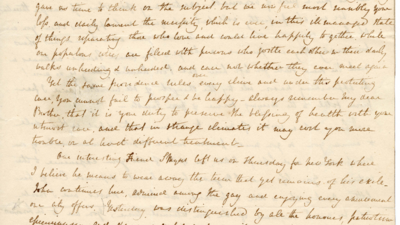 gave us time to think on the subject but we now feel most sensibly your
loss and daily lament the necessity which is even in this ill managed state
of things separating those who love and could live happily together while
our populous cities are filled with persons who jostle each other in their daily
walks unheeding & unheeded, and care not whether they ever meet again
Yet the same providence rules over every clime and under this protecting
care you cannot fail to prosper & be happy – always remember my dear
Brother that it is your duty to preserve the blessing of health with your
utmost care, and that in strange climates it may cost you more
trouble, or at least different treatment –
Our interesting friend Payne left us on Thursday for New York where
I believe he means to wear away, the term that yet remains of his exile
John continues here, admired among the gay and enjoying every amusement
our city offers. Yesterday was distinguished by all the honours, patriotism